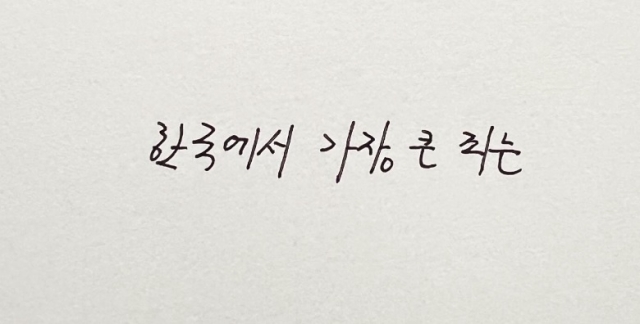 한국에서 가장 큰 리는